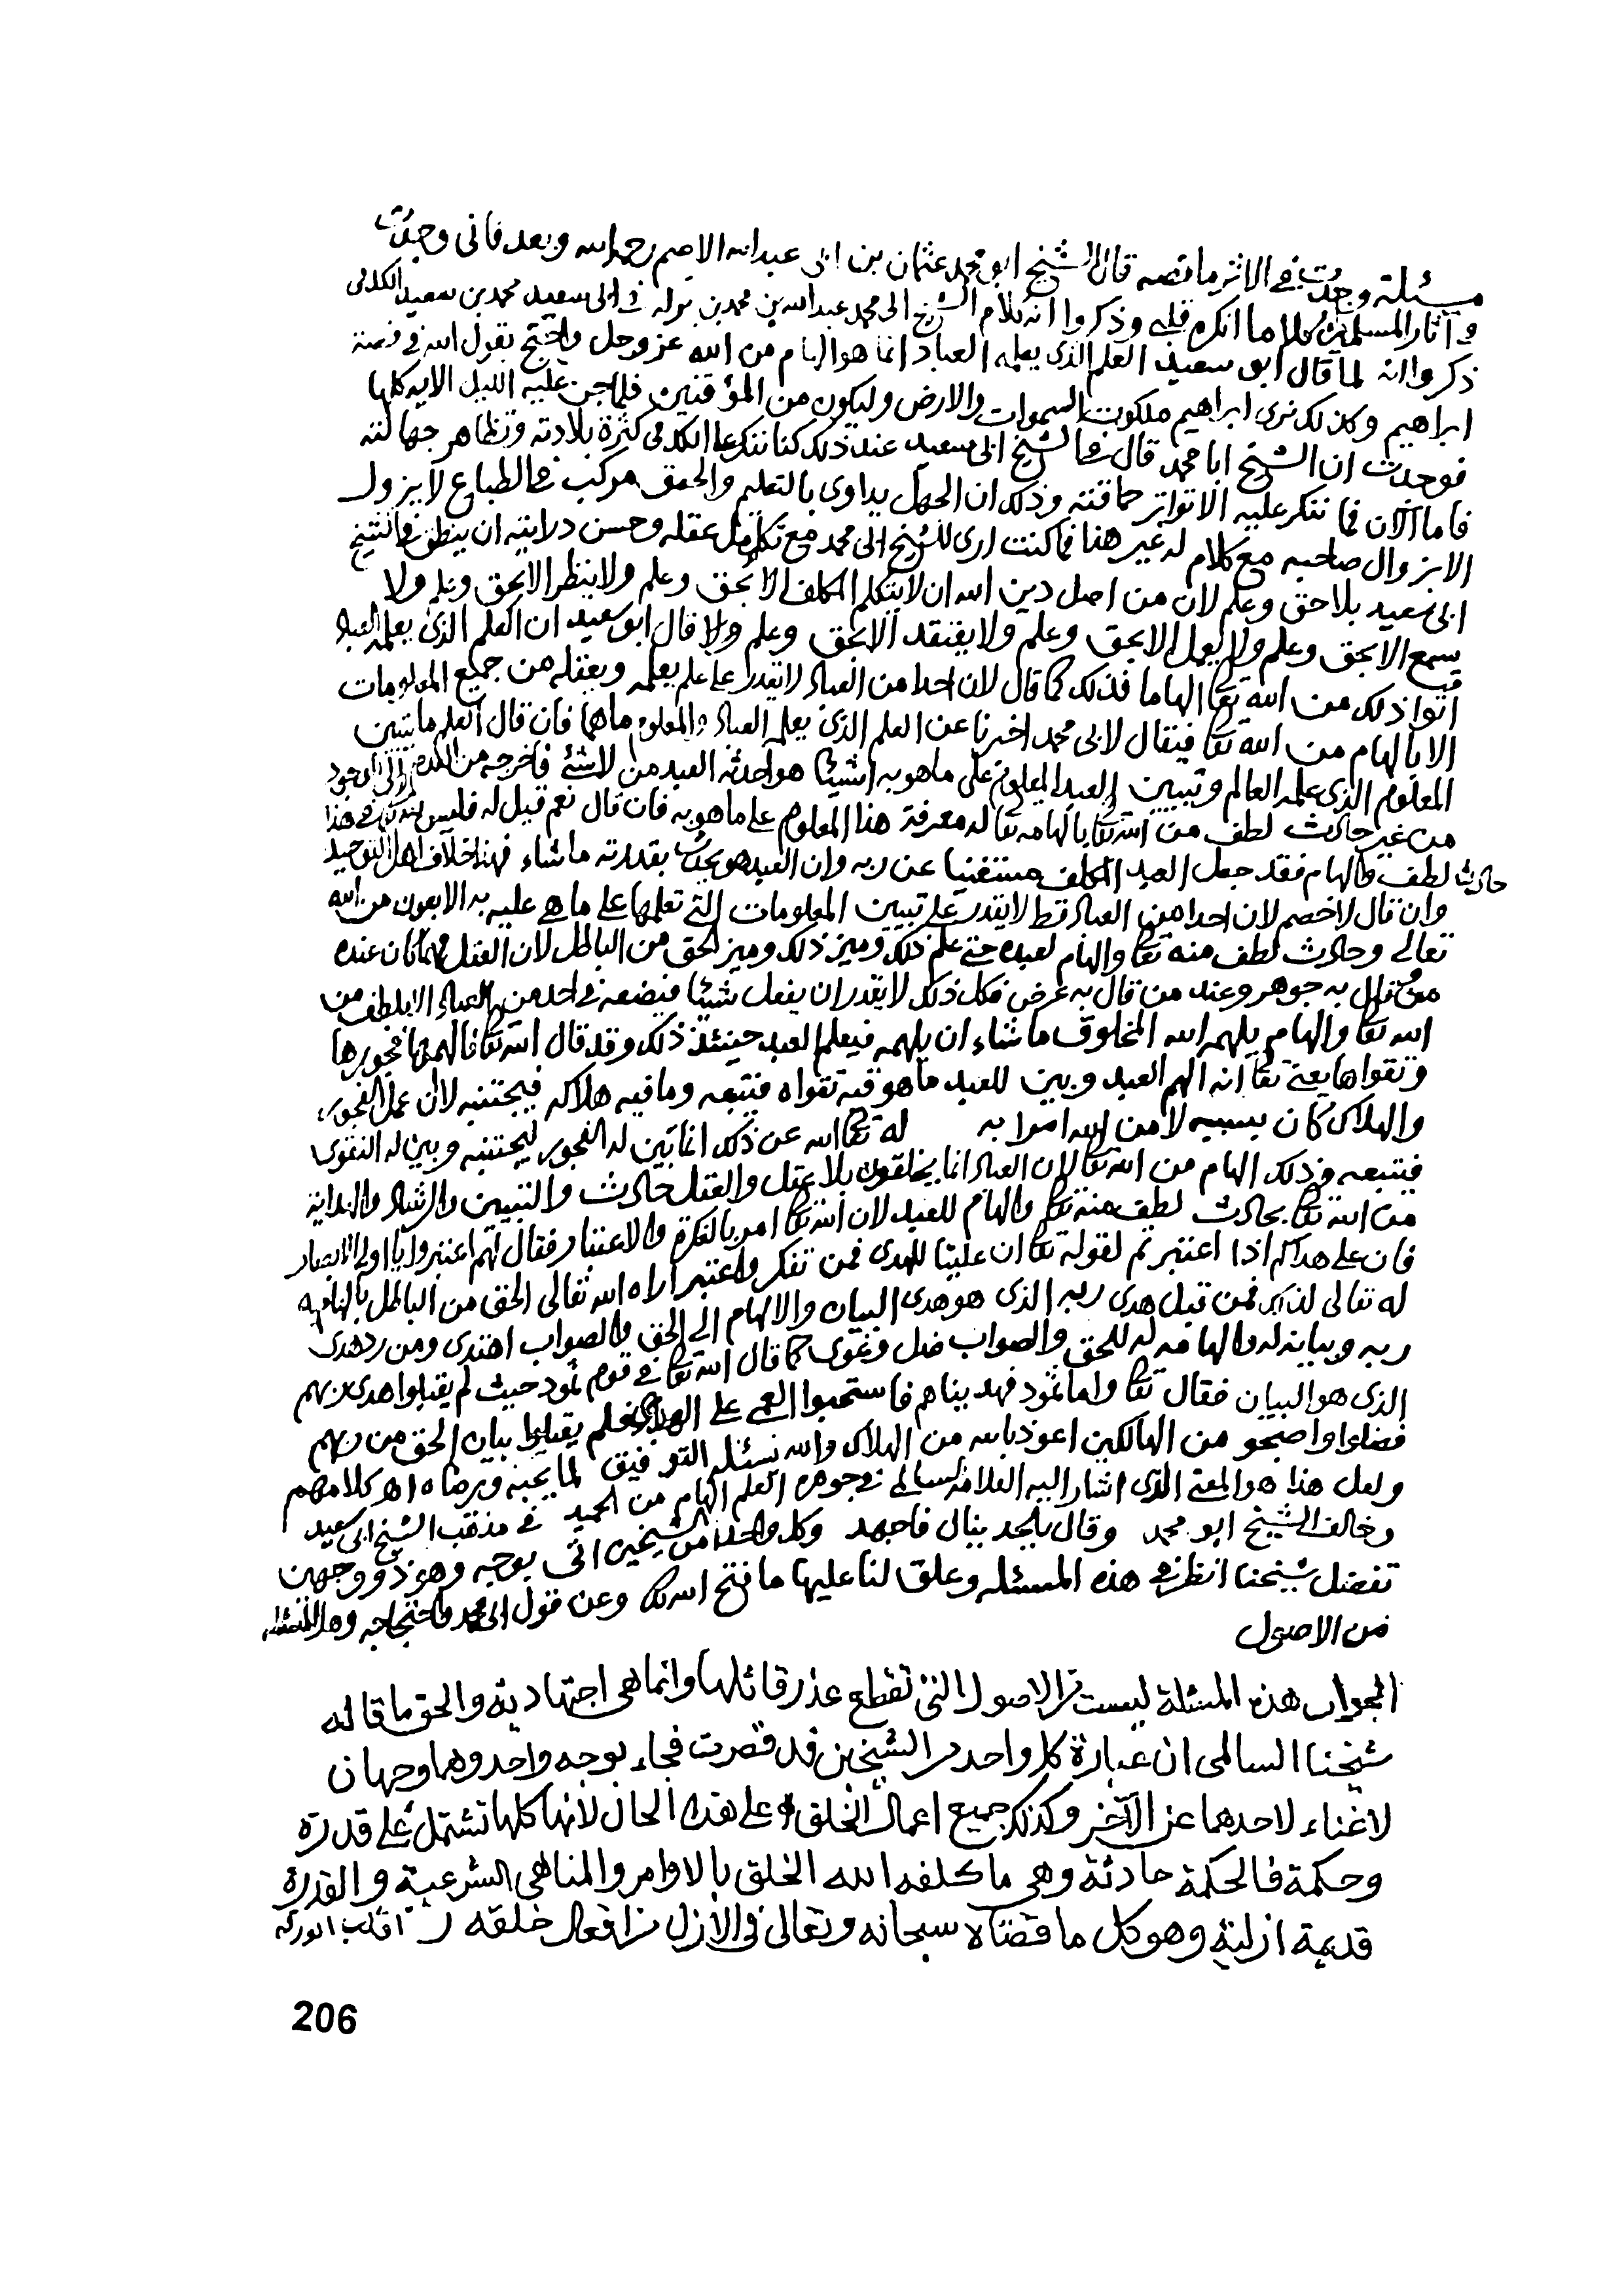 مسئلة وجدت في الاثر ما نصه قال الشيخ ابو محمد عثمان بن ابى عبدالله الاصم رحمه الله وبعد فانى وجدت
في آثار المسلمين كلاما انكره قلبى وذكروا انه كلام الشيخ ابى محمد عبدالله بن محمد بن بركه فى ابى سعيد محمد بن سعيد الكدمى
ذكروا انه لما قال ابو سعيد العلم الذى يعلمه العباد انما هو الهام من الله عز وجل واحتج بقول الله فى قصة
ابراهيم وكذلك نرى ابراهيم ملكوت السموات والارض وليكون من المؤقنين فلما جن عليه الليل الايه كلها
فوجدت ان الشيخ ابا محمد قال فى الشيخ ابى سعيد عند ذلك كنا ننكر على الكدمى كثرة بلادته وتظاهر جهالته
فاما الآن فما ننكر عليه الا تواتر حماقته وذلك ان الجهل يداوى بالتعليم والحمق مركب فى الطباع لا يزول
الا بزوال صاحبه مع كلام له غير هذا فما كنت ارى للشيخ ابى محمد مع تكامل عقله وحسن درايته ان ينطق فى الشيخ
ابى سعيد بلا حق وعلم لان من اصل دين الله ان لا يتكلم المكلف الا بحق وعلم ولا ينظر الا بحق وعلم ولا
يسمع الا بحق وعلم ولا يعمل الا بحق وعلم ولا يعتقد الا بحق وعلم ولا قال ابو سعيد ان العلم الذى يعلمه العباد
اتوا ذلك من الله تعا الهاما فذلك كما قال لان احدا من العباد لا يقدر على علم يعلمه ويعقله من جميع المعلومات
الا بالهام من الله تعا فيقال لابى محمد اخبرنا عن العلم الذى يعلمه العباد والمعلوم ماهما فان قال العلم ما يتبين
المعلوم الذى علمه العالم وتبيين العبد المعلوم على ما هو به اشيئا هو احدثه العبد من لا شئ فاخرجه من العدم الى الوجود
من غير حادث لطف من الله تعا بالهامه تعا له معرفة هذا المعلوم على ما هو به فان قال نعم قيل له فليس لله تعا فى هذا
حادث لطف والهام فقد جعل العبد المكلف مستغنيا عن ربه وان العبد هو يحدث بقدرته ما شاء فهذا خلاف اهل التوحيد
وان قال لا خصم لان احدا من العباد قط لا يقدر على تبيين المعلومات التى تعلمها على ما هى عليه به الا بعون من الله
تعالى وحادث لطف منه تعا والهام لعبده حتى علم ذلك وميز ذلك وميز الحق من الباطل لان العقل مهما كان عنده
من قال به جوهر وعند من قال به عرض فكل ذلك لا يقدر ان يفعل شيئا فيضعه فى احد من العباد الا بلطف من
الله تعا والهام يلهمه الله المخلوق ما شاء ان يلهمه فيعلم العبد حينئذ ذلك وقد قال الله تعا فالهمها فجورها
وتقواها يعنى تعا انه الهم العبد وبين للعبد ما هو فيه تقواه فتتبعه وما فيه هلاكه فيجتنبه لان عمل الفجور
والهلاك كان بسببه لا من الله امرا به له تعا الله عن ذلك انما بين له الفجور ليجتنبه وبين له التقوى
فيتبعه وذلك الهام من الله تعا لان العباد انما يخلقون بلا عقل والعقل حادث والتبيين والرشاد والهداية
من الله تعا بحادث لطف منه تعا والهام للعبد لان الله تعا امر بالفكرة والاعتبار فقال لهم اعتبروا يا اولى الابصار
فان على هداكم اذا اعتبرتم لقوله تعا ان علينا للهدى فمن تفكر واعتبر اراه الله تعالى الحق من الباطل بالهامه
له تعالى لذلك فمن قبل هدى ربه الذى هو هدى البيان والالهام الى الحق والصواب اهتدى ومن رد هدى
ربه وبيانه له والهامه له للحق والصواب ضل وغوى كما قال الله تعا فى قوم ثمود حيث لم يقبلوا هدى ربهم
الذى هو البيان فقال تعا واما ثمود فهديناهم فاستحبوا العمى على الهدى فلم يقبلوا بيان الحق من ربهم
فضلوا واصبحو من الهالكين اعوذ بالله من الهلاك والله نسئله التوفيق لما يحبه ويرضاه اهـ كلامهم
ولعل هذا هو المعنى الذى اشار اليه العلامة السالمى فى جوهره العلم الهام من الحميد فى مذهب الشيخ ابى سعيد
وخالف الشيخ ابو محمد وقال بالجد ينال فاجهد وكل واحد من الشيخين اتى بوجه وهو ذو وجهين
تفضل شيخنا انظر فى هذه المسئله وعلق لنا عليها ما فتح الله لك وعن قول ابى محمد واحتجاجه وهل المسئله
من الاصول
الجواب هذه المسئلة ليست من الاصول التى تقطع عذر قائلها وانما هى اجتهادية والحق ما قاله
شيخنا السالمى ان عبارة كل واحد من الشيخين قد قصرت فجاء بوجه واحد وهما وجهان
لا غناء لاحدهما عن الآخر وكذلك جميع اعمال الخلق على هذه الحال لانها كلها تشتمل على قدرة
وحكمة فالحكمة حادثة وهى ما كلفه الله الخلق بالاوامر والمناهى الشرعية والقدرة
قديمة ازلية وهو كل ما قضاه سبحانه وتعالى فى الازل من افعال خلقه اقلب الورقه
206